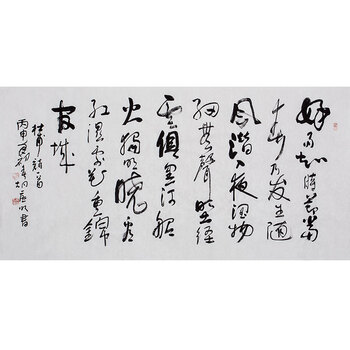 好雨知時節當
春乃發生隨
風潛入夜潤物
細無聲野徑
雲俱黑江船
火獨明曉看
紅濕處花重錦
官城
杜甫詩首
丙申書